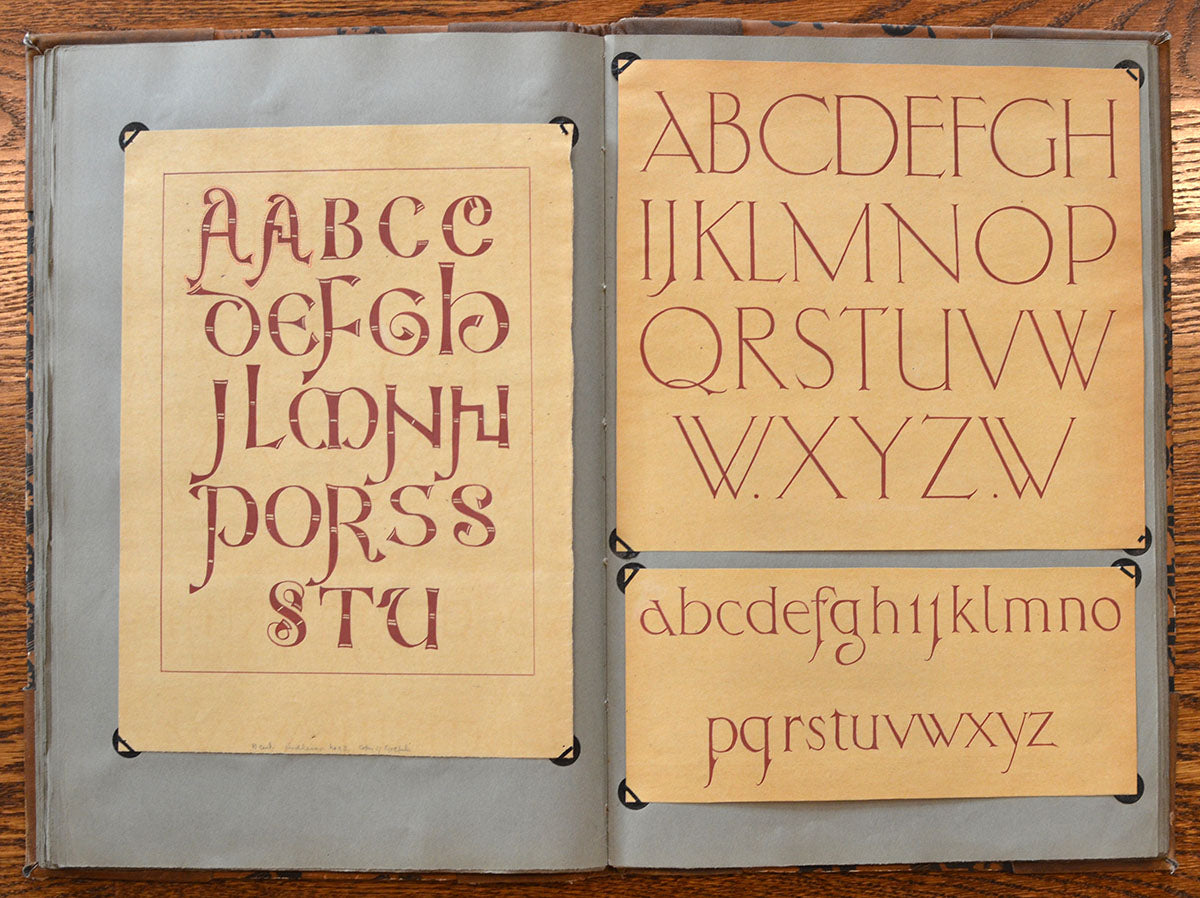 AABCC
DEFGH
JLMNN
PORSS
STU
ABCDEFGH
IJKLMNOP
QRSTUVW
W.XYZ.W
abcdefghijklmno
pqrstuvwxyz